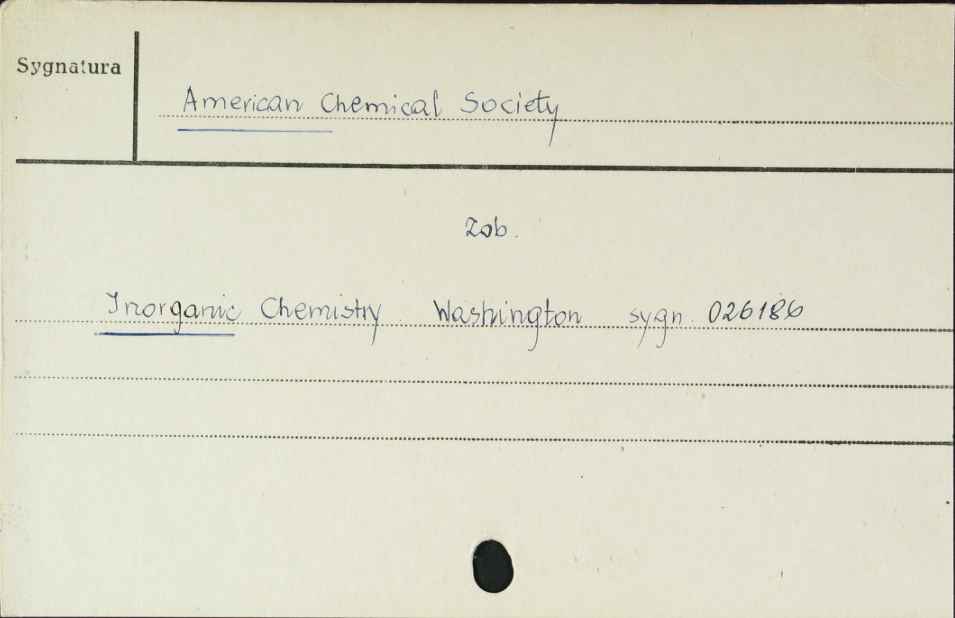 Sygnatura
American Chemical Society
Zob.
Inorganic Chemistry Washington sygn 026186